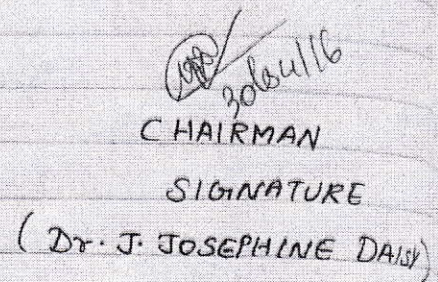 30/04/16
CHAIRMAN
SIGNATURE
(Dr. J. JOSEPHINE DAISY)